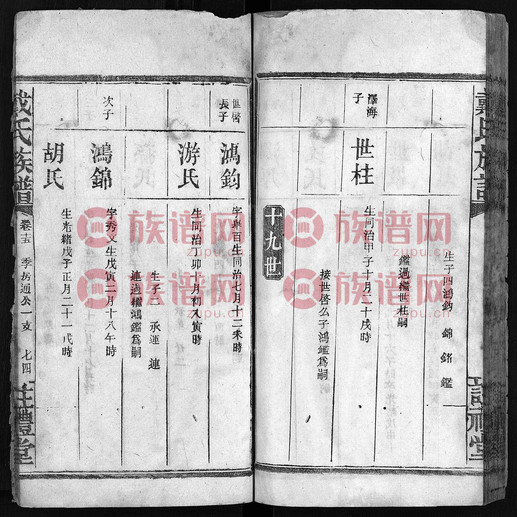 戴氏族譜
生子四鴻鈞 錦 銘 鑑
鑑過繼世柱嗣
澤海子
世柱
生同治甲子十月十戌時
接世啓么子鴻鑑爲嗣
十九世
世啓長子
鴻鈞
生同治
七月十二未時
游氏
生同治丁卯八月初八寅時
生子 承運 連
連過繼鴻鑑爲嗣
次子
鴻錦
字秀文生戊寅二月十八午時
胡氏
生光緒戊子正月二十一戌時
戴氏族譜
卷五
季房通公一支
七四
注禮堂
族谱网
zupu.cn